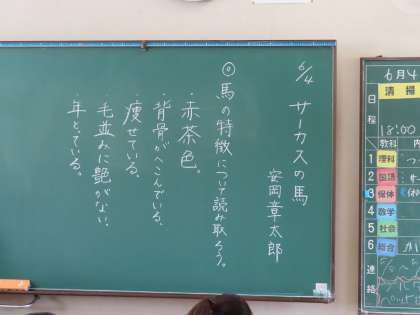 6/4 サーカスの馬
安岡章太郎
◎馬の特徴について読み取ろう。
・赤茶色。
・背骨がへこんでいる、
・痩せている、
・毛並みに艶がない、
・年とっている。
6月4
清掃
日程
18:00
教科
1 理科
2 国語
3 保体
4 数学
5 社会
6 総合
連絡